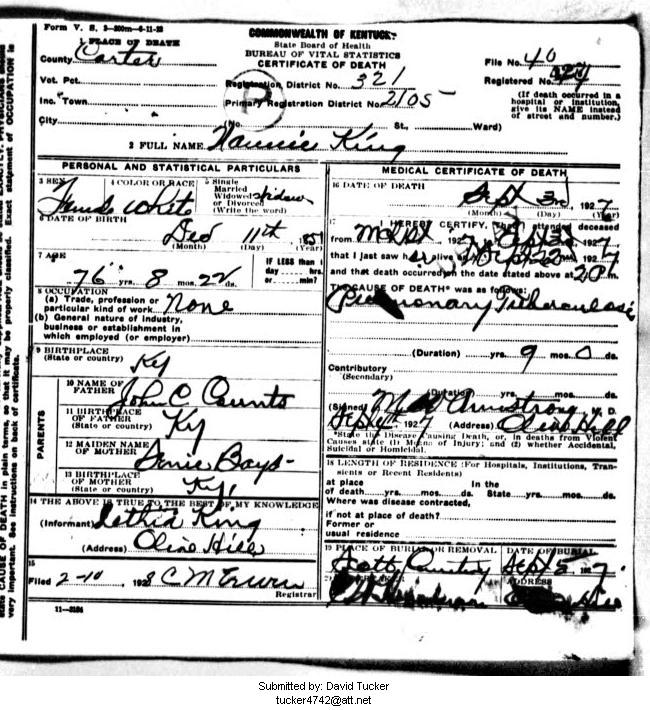 Form V. S. 3-200m-6-11-23
COMMONWEALTH OF KENTUCKY
State Board of Health
BUREAU OF VITAL STATISTICS
CERTIFICATE OF DEATH
1 PLACE OF DEATH
County Carter
File No. 40
Registered No.
Vot. Pct.
Registration District No. 321
Inc. Town
Primary Registration District No. 2105
(If death occurred in a hospital or institution, give its NAME instead of street and number.)
City (No. St., Ward)
2 FULL NAME Nannie King
PERSONAL AND STATISTICAL PARTICULARS
3 SEX Female
4 COLOR OR RACE White
5 Single Married Widowed or Divorced (Write the word) Widow
6 DATE OF BIRTH
Dec 11th 185
(Month) (Day) (Year)
7 AGE
76 yrs. 8 mos. 22 ds.
IF LESS than 1 day hrs. or min?
8 OCCUPATION
(a) Trade, profession or particular kind of work None
(b) General nature of industry, business or establishment in which employed (or employer)
9 BIRTHPLACE
(State or country) Ky
PARENTS
10 NAME OF FATHER John C Counts
11 BIRTHPLACE OF FATHER
(State or country) Ky
12 MAIDEN NAME OF MOTHER Boyd
13 BIRTHPLACE OF MOTHER
(State or country) Ky.
14 THE ABOVE IS TRUE TO THE BEST OF MY KNOWLEDGE
(Informant) Lethia King
(Address) Olive Hill
15
Filed 2-10, 1928 C M Erwin
Registrar
11-3184
MEDICAL CERTIFICATE OF DEATH
16 DATE OF DEATH
Sept 3rd, 1927
(Month) (Day) (Year)
17 I HEREBY CERTIFY, That I attended deceased
from 192 , to 192
that I last saw h er alive on Sept 22, 1927
and that death occurred on the date stated above at 2 P m.
The CAUSE OF DEATH* was as follows:
Pulmonary Tuberculosis
(Duration) yrs. 9 mos. 0 ds.
Contributory
(Secondary)
(Duration) yrs. mos. ds.
(Signed) Armstrong M. D.
Sept 4, 1927 (Address) Olive Hill
*State the Disease Causing Death, or, in deaths from Violent Causes state (1) Means of Injury; and (2) whether Accidental, Suicidal or Homicidal.
18 LENGTH OF RESIDENCE (For Hospitals, Institutions, Transients or Recent Residents)
at place of death yrs. mos. ds. In the State yrs. mos. ds.
Where was disease contracted,
if not at place of death?
Former or
usual residence
19 PLACE OF BURIAL OR REMOVAL DATE OF BURIAL
Sept 5 1927
ADDRESS
state CAUSE OF DEATH in plain terms, so that it may be properly classified. Exact statement of OCCUPATION is
very important. See instructions on back of certificate.
Submitted by: David Tucker
tucker4742@att.net